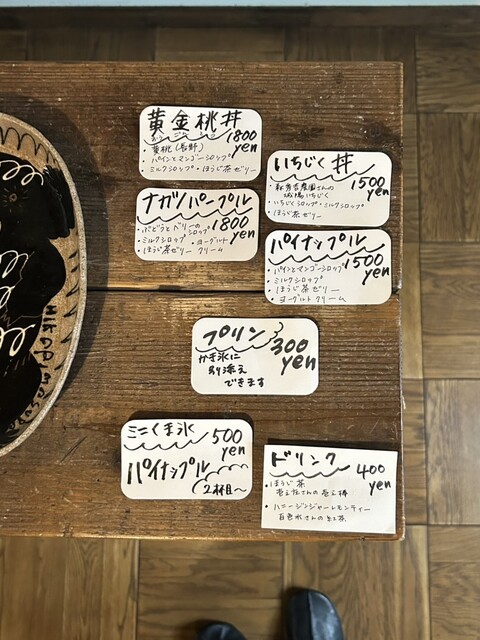 黄金桃丼
1800
yen
・黄桃(長野)
・パインとマンゴーシロップ
・ミルクシロップ・ほうじ茶ゼリー
いちじく丼
1500
yen
城陽いちじく
・いちじくシロップ・ミルクシロップ
・ほうじ茶ゼリー
ナガノパープル
1800
yen
・ぶどうとベリーのシロップ
・ミルクシロップ ・ヨーグルト
・ほうじ茶ゼリー クリーム
パイナップル
1500
yen
・パインとマンゴーシロップ
・ミルクシロップ
・ほうじ茶ゼリー
・ヨーグルトクリーム
プリン
300
yen
かき氷に
別添え
できます
ミニくま氷
500
yen
パイナップル
2杯目~
ドリンク
400
yen
・ほうじ茶
・ハニージンジャーレモンティー